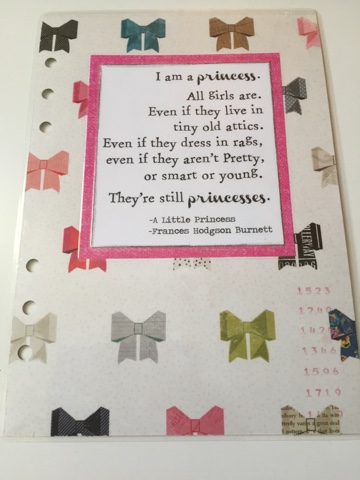 I am a princess.
All girls are.
Even if they live in
tiny old attics.
Even if they dress in rags,
even if they aren't Pretty,
or smart or young.
They're still princesses.
-A Little Princess
-Frances Hodgson Burnett
1523
1346
1596
1719